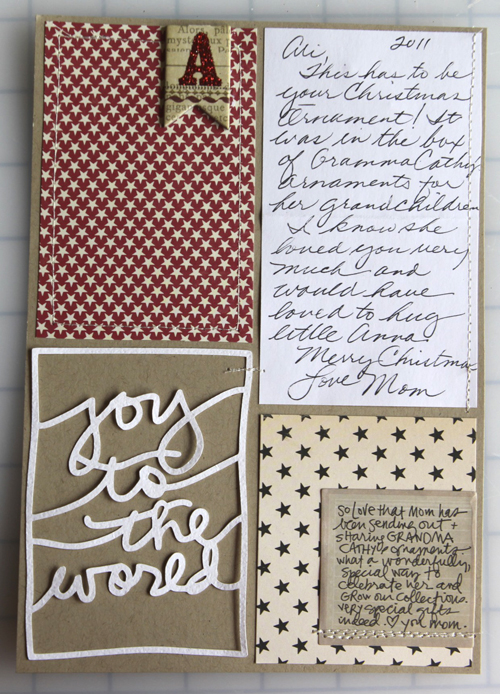 Alors, pale
mystérieux
gigantesque
A
Ali, 2011
This has to be
your Christmas
Ornament! It
was in the box
of Gramma Cathy
ornaments for
her grandchildren
I know she
loved you very
much and
would have
loved to hug
little Anna.
Merry Christmas
Love Mom
joy
to
the
world
so love that mom has
been sending out +
sharing GRANDMA
CATHY's ornaments
what a wonderfully,
special way to
celebrate her and
GROW our collections.
very special gifts
indeed. ♡ you mom.